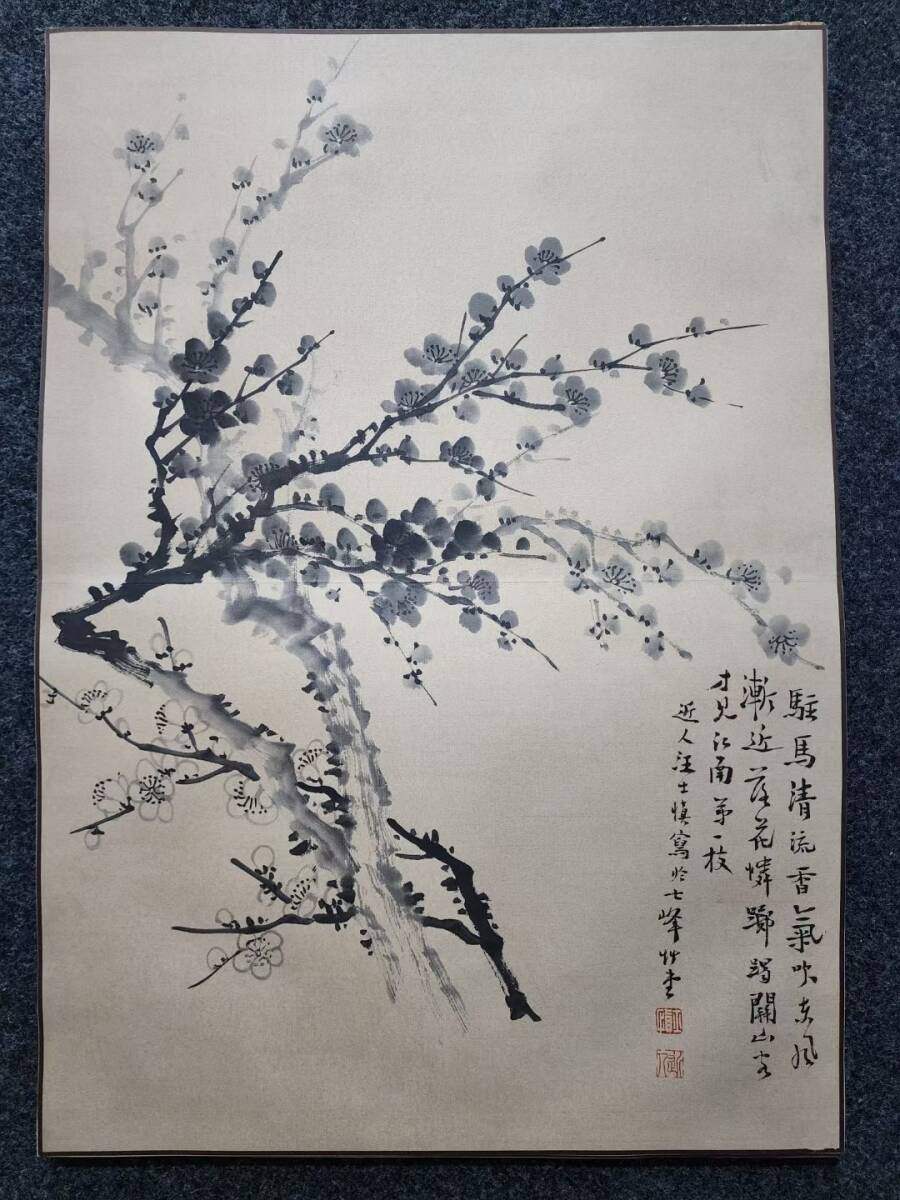 駐馬清流香氣吹東風
漸近落花憐躑躅關山客
才見江南第一枝
近人汪士慎寫於七峰艸堂